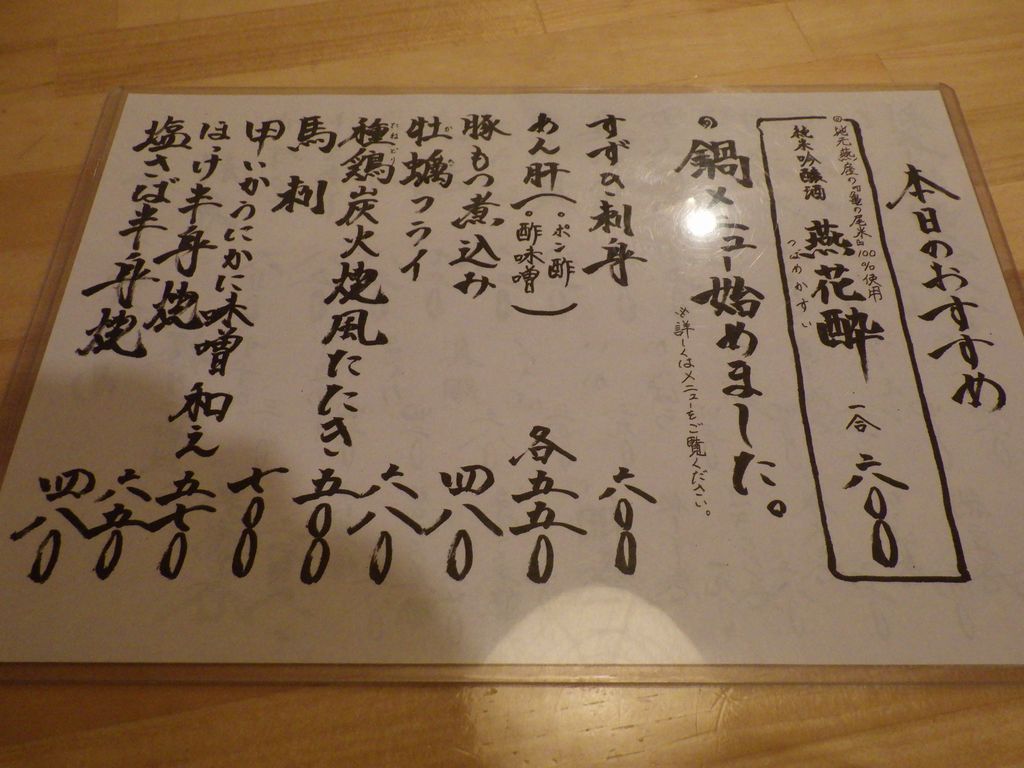 本日のおすすめ
地元燕産の亀の尾米100%使用
純米吟醸酒 燕花酔 一合 六〇〇
つばめかすい
鍋メニュー始めました。
※詳しくはメニューをご覧ください。
すずき刺身 六〇〇
あん肝(・ポン酢 ・酢味噌) 各五五〇
豚もつ煮込み 四八〇
牡蠣フライ 六八〇
かき
種鶏炭火焼風たたき 五〇〇
たねどり
馬刺 七〇〇
甲いかうにかに味噌和え 五七〇
ほっけ半身焼 六五〇
塩さば半身焼 四八〇